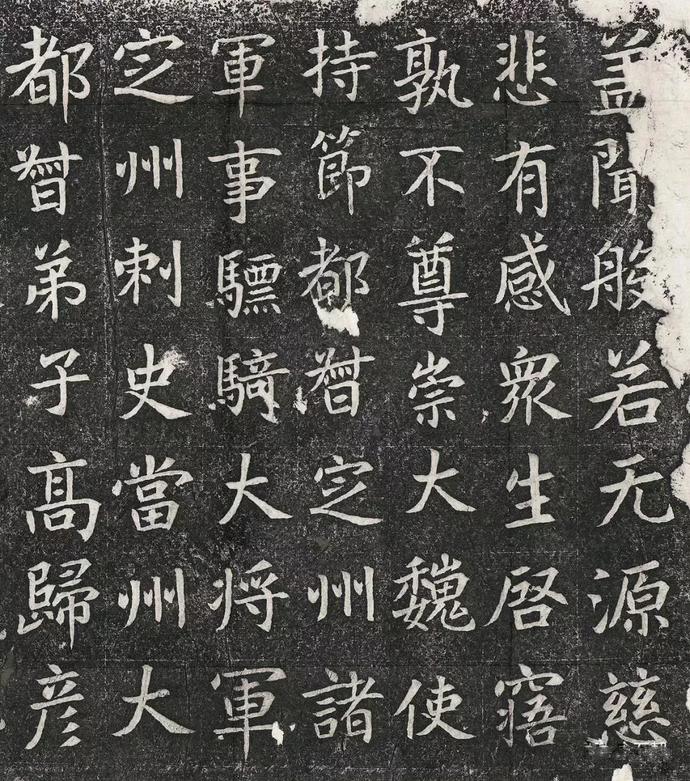 盖聞般若无源慈
悲有感衆生啓寤
孰不尊崇大魏使
持節都督㝎州諸
軍事驃騎大将軍
㝎州刺史當州大
都督弟子髙歸彦